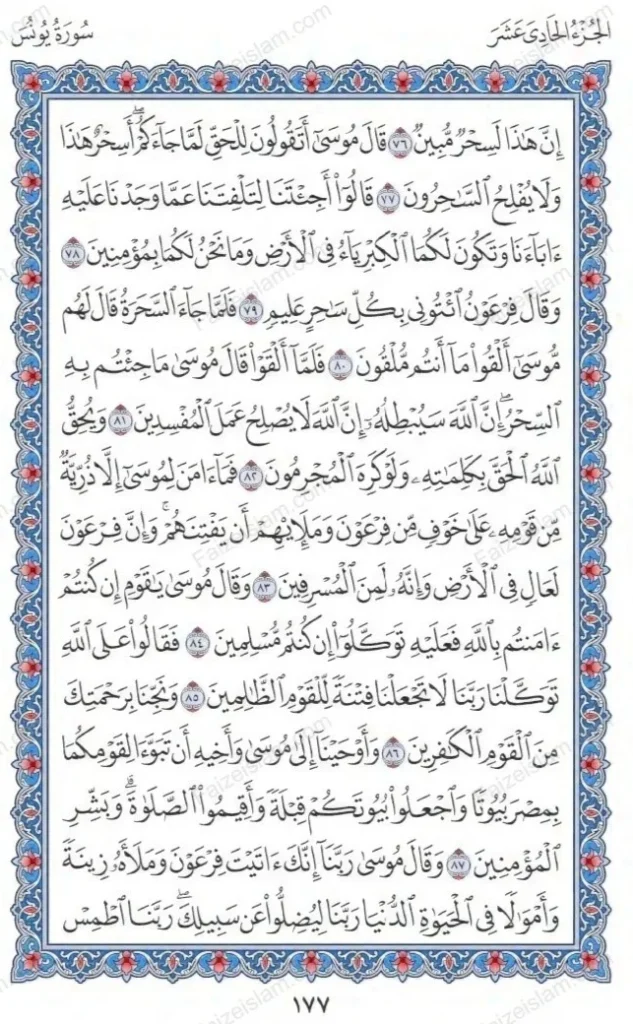 الجُزْءُ الحَادِيَ عَشَرَ
سُورَةُ يُونُسَ
إِنَّ هَٰذَا لَسِحْرٌ مُّبِينٌ ٧٦ قَالَ مُوسَىٰٓ أَتَقُولُونَ لِلْحَقِّ لَمَّا جَآءَكُمْۖ أَسِحْرٌ هَٰذَا
وَلَا يُفْلِحُ السَّٰحِرُونَ ٧٧ قَالُوٓا۟ أَجِئْتَنَا لِتَلْفِتَنَا عَمَّا وَجَدْنَا عَلَيْهِ
ءَابَآءَنَا وَتَكُونَ لَكُمَا الْكِبْرِيَآءُ فِي الْأَرْضِ وَمَا نَحْنُ لَكُمَا بِمُؤْمِنِينَ ٧٨
وَقَالَ فِرْعَوْنُ ائْتُونِي بِكُلِّ سَٰحِرٍ عَلِيمٍ ٧٩ فَلَمَّا جَآءَ السَّحَرَةُ قَالَ لَهُم
مُّوسَىٰٓ أَلْقُوا۟ مَآ أَنتُم مُّلْقُونَ ٨٠ فَلَمَّآ أَلْقَوْا۟ قَالَ مُوسَىٰ مَا جِئْتُم بِهِ
السِّحْرُۖ إِنَّ اللَّهَ سَيُبْطِلُهُۥٓ إِنَّ اللَّهَ لَا يُصْلِحُ عَمَلَ الْمُفْسِدِينَ ٨١ وَيُحِقُّ
اللَّهُ الْحَقَّ بِكَلِمَٰتِهِۦ وَلَوْ كَرِهَ الْمُجْرِمُونَ ٨٢ فَمَآ ءَامَنَ لِمُوسَىٰٓ إِلَّا ذُرِّيَّةٌ
مِّن قَوْمِهِۦ عَلَىٰ خَوْفٍ مِّن فِرْعَوْنَ وَمَلَإِي۟هِمْ أَن يَفْتِنَهُمْۚ وَإِنَّ فِرْعَوْنَ
لَعَالٍ فِي الْأَرْضِ وَإِنَّهُۥ لَمِنَ الْمُسْرِفِينَ ٨٣ وَقَالَ مُوسَىٰ يَٰقَوْمِ إِن كُنتُمْ
ءَامَنتُم بِاللَّهِ فَعَلَيْهِ تَوَكَّلُوٓا۟ إِن كُنتُم مُّسْلِمِينَ ٨٤ فَقَالُوا۟ عَلَى اللَّهِ
تَوَكَّلْنَا رَبَّنَا لَا تَجْعَلْنَا فِتْنَةً لِّلْقَوْمِ الظَّٰلِمِينَ ٨٥ وَنَجِّنَا بِرَحْمَتِكَ
مِنَ الْقَوْمِ الْكَٰفِرِينَ ٨٦ وَأَوْحَيْنَآ إِلَىٰ مُوسَىٰ وَأَخِيهِ أَن تَبَوَّءَا لِقَوْمِكُمَا
بِمِصْرَ بُيُوتًا وَاجْعَلُوا۟ بُيُوتَكُمْ قِبْلَةً وَأَقِيمُوا۟ الصَّلَوٰةَۗ وَبَشِّرِ
الْمُؤْمِنِينَ ٨٧ وَقَالَ مُوسَىٰ رَبَّنَآ إِنَّكَ ءَاتَيْتَ فِرْعَوْنَ وَمَلَأَهُۥ زِينَةً
وَأَمْوَٰلًا فِي الْحَيَوٰةِ الدُّنْيَا رَبَّنَا لِيُضِلُّوا۟ عَن سَبِيلِكَۖ رَبَّنَا اطْمِسْ
١٧٧
Faizeislam.com